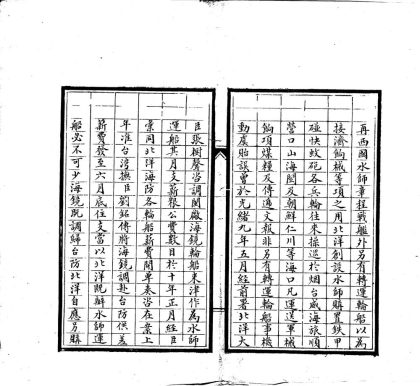 再西國水師章程戰艦外另有轉運輪船以為
接濟餉械等項之用北洋創設水師購置鉄甲
碰快蚊砲各兵輪往來操巡於烟台威海旅順
營口山海關及朝鮮仁川等海口凡運送軍械
餉項煤糧及傳遞文報非另有轉運輪船事機
動虞貽誤曾於光緒九年五月經前署北洋大
臣張樹聲咨調閩廠海鏡輪船來津作為水師
運船其月支薪粮公費數目於十年正月經臣
彙同北洋海防各輪船薪費開單奏咨在案上
年准台灣撫臣劉銘傳將海鏡調赴台防供差
薪費發至六月底住支當以北洋既辦水師運
船必不可少海鏡既調歸台防北洋自應另購